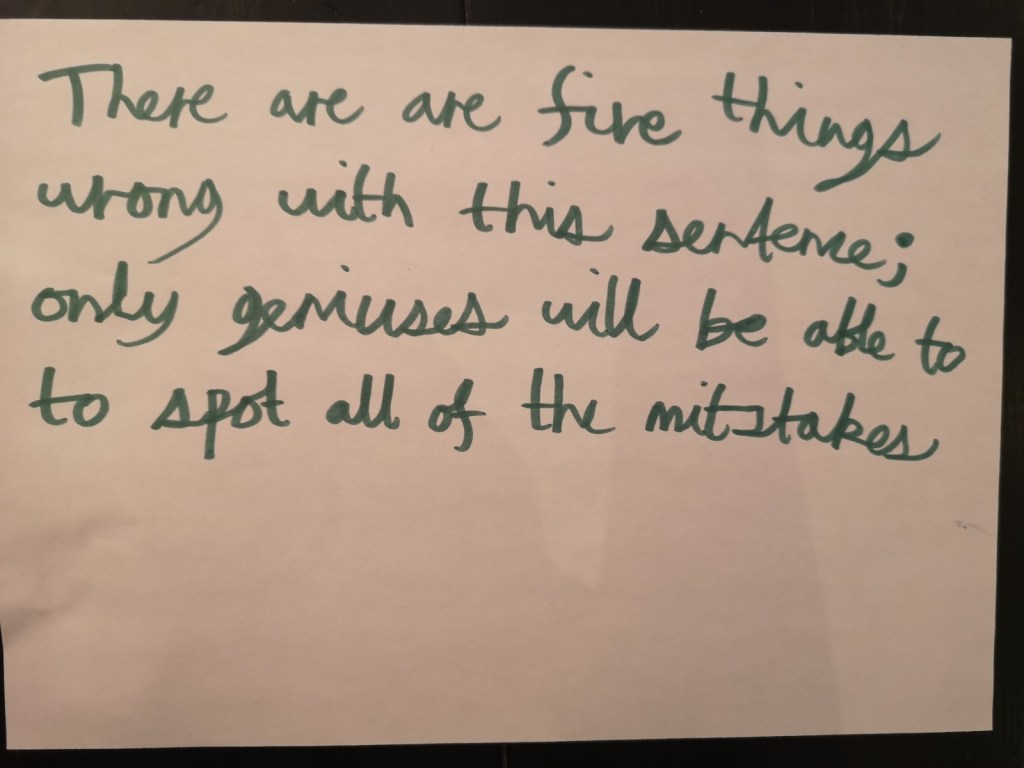 There are are five things
wrong with this sentence;
only geniuses will be able to
to spot all of the mitstakes